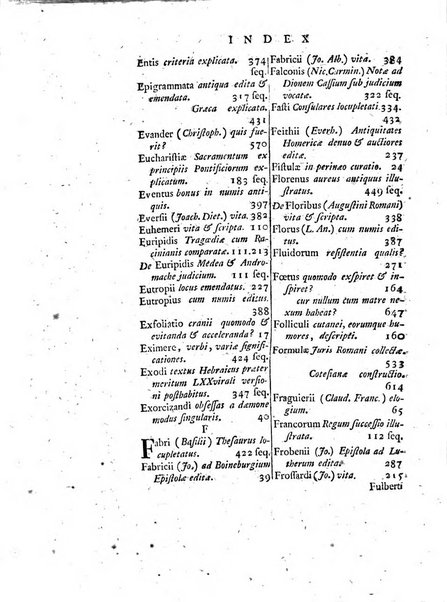 INDEX
Entis criteria explicata. 374
seq.
Epigrammata antiqua edita &
emendata. 317 seq.
Græca explicata.
431
Evander (Christoph.) quis fue-
rit? 570
Eucharistiæ Sacramentum ex
principiis Pontificiorum ex-
plicatum. 183 seq.
Eventus bonus in numis anti-
quis. 397
Eversii (Joach. Diet.) vita. 382
Euhemeri vita & scripta. 110
Euripidis Tragœdiæ cum Ra-
cinianis comparatæ. 111.213
De Euripidis Medea & Andro-
mache judicium. 111 seq.
Eutropii locus emendatus. 227
Eutropius cum numis editus.
388
Exfoliatio cranii quomodo &
evitanda & acceleranda? 17
Eximere, verbi, variæ signifi-
cationes. 424 seq.
Exodi textus Hebraicus præter
meritum LXXvirali versio-
ni postbabitus. 347 seq.
Exorcizandi obsessas a dæmone
modus singularis. 40
F
Fabri (Basilii) Thesaurus lo-
cupletatus. 422 seq.
Fabricii (Jo.) ad Boineburgium
Epistolæ editæ. 39
Fabricii (Jo. Alb.) vita. 384
Falconis (Nic. Carmin.) Notæ ad
Dionem Cassium sub judicium
vocatæ. 322 seq.
Fasti Consulares locupletati. 334.
432
Feithii (Everh.) Antiquitates
Homericæ denuo & auctiores
editæ. 237
Fistulæ in perinæo curatio. 24
Florenus aureus antiquus illu-
stratus. 449 seq.
De Floribus (Augustini Romani)
vita & scripta. 338
Florus (L. An.) cum numis edi-
tus. 387
Fluidorum resistentia qualis?
271
Fœtus quomodo exspiret & in-
spiret? 164
cur nullum cum matre ne-
xum habeat? 647
Folliculi cutanei, eorumque hu-
mores, descripti. 160
Formulæ Juris Romani collectæ.
533
Cotesianæ constructio.
614
Fraguierii (Claud. Franc.) elo-
gium. 65
Francorum Regum successio ill-
ustrata. 112 seq.
Frobenii (Jo.) Epistola ad Lu-
therum edita. 287
Frossardi (Jo.) vita. 215.
Fulberti